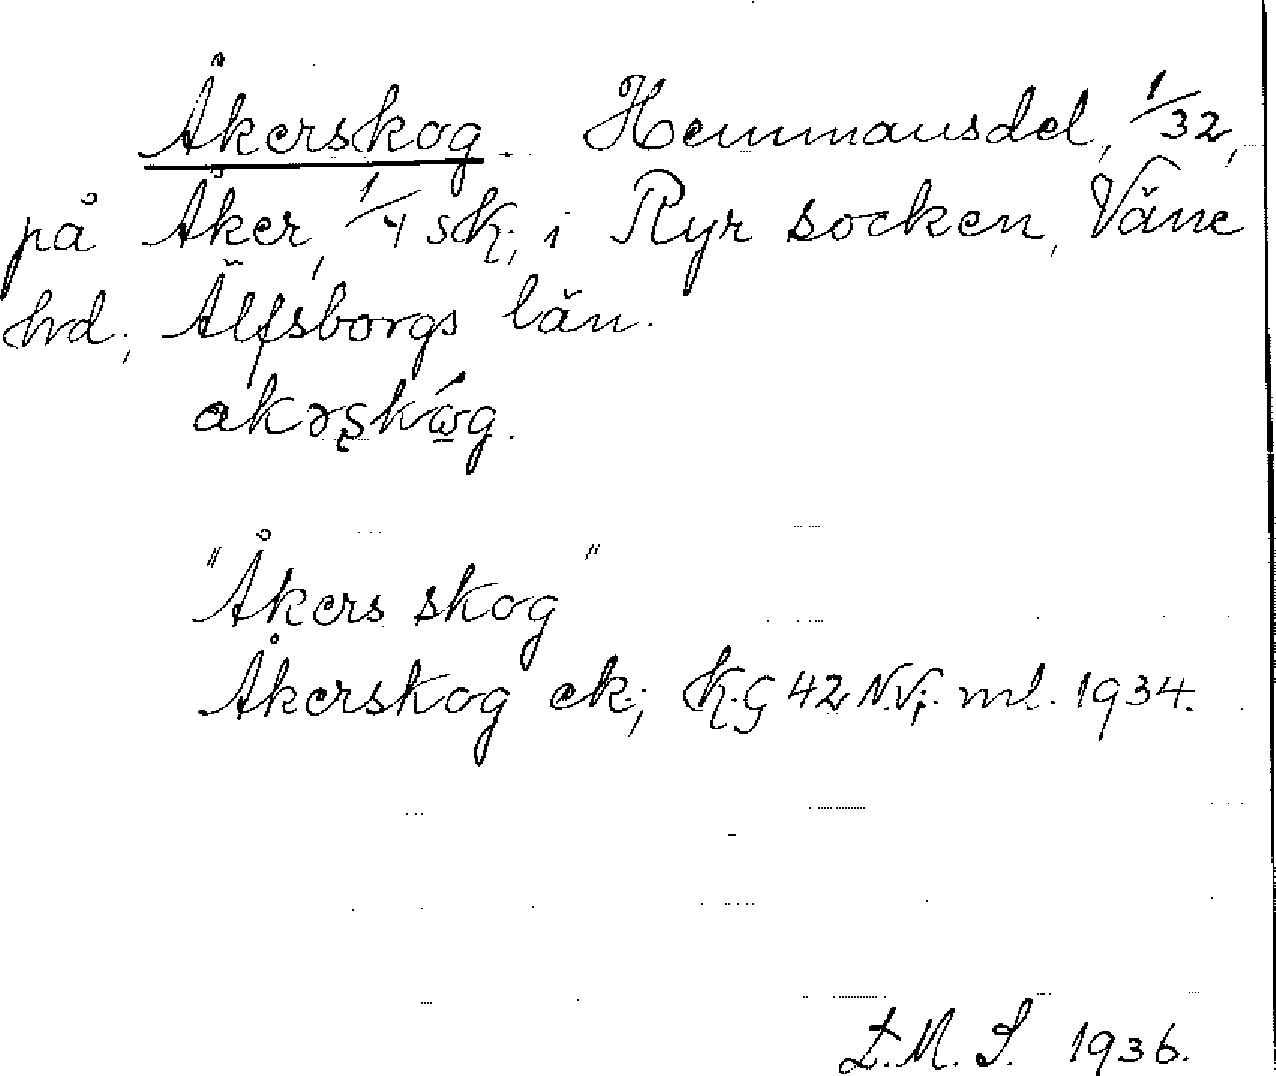 Åkerskog. Hemmansdel, 1/32,
på Åker, 1/4 sk., i Ryr socken, Väne
hd., Älfsborgs län.
akəʂkɷ́g.
"Åkers skog"
Åkerskog ek.; K.G 42 N.V; ml. 1934.
L.M.S. 1936.